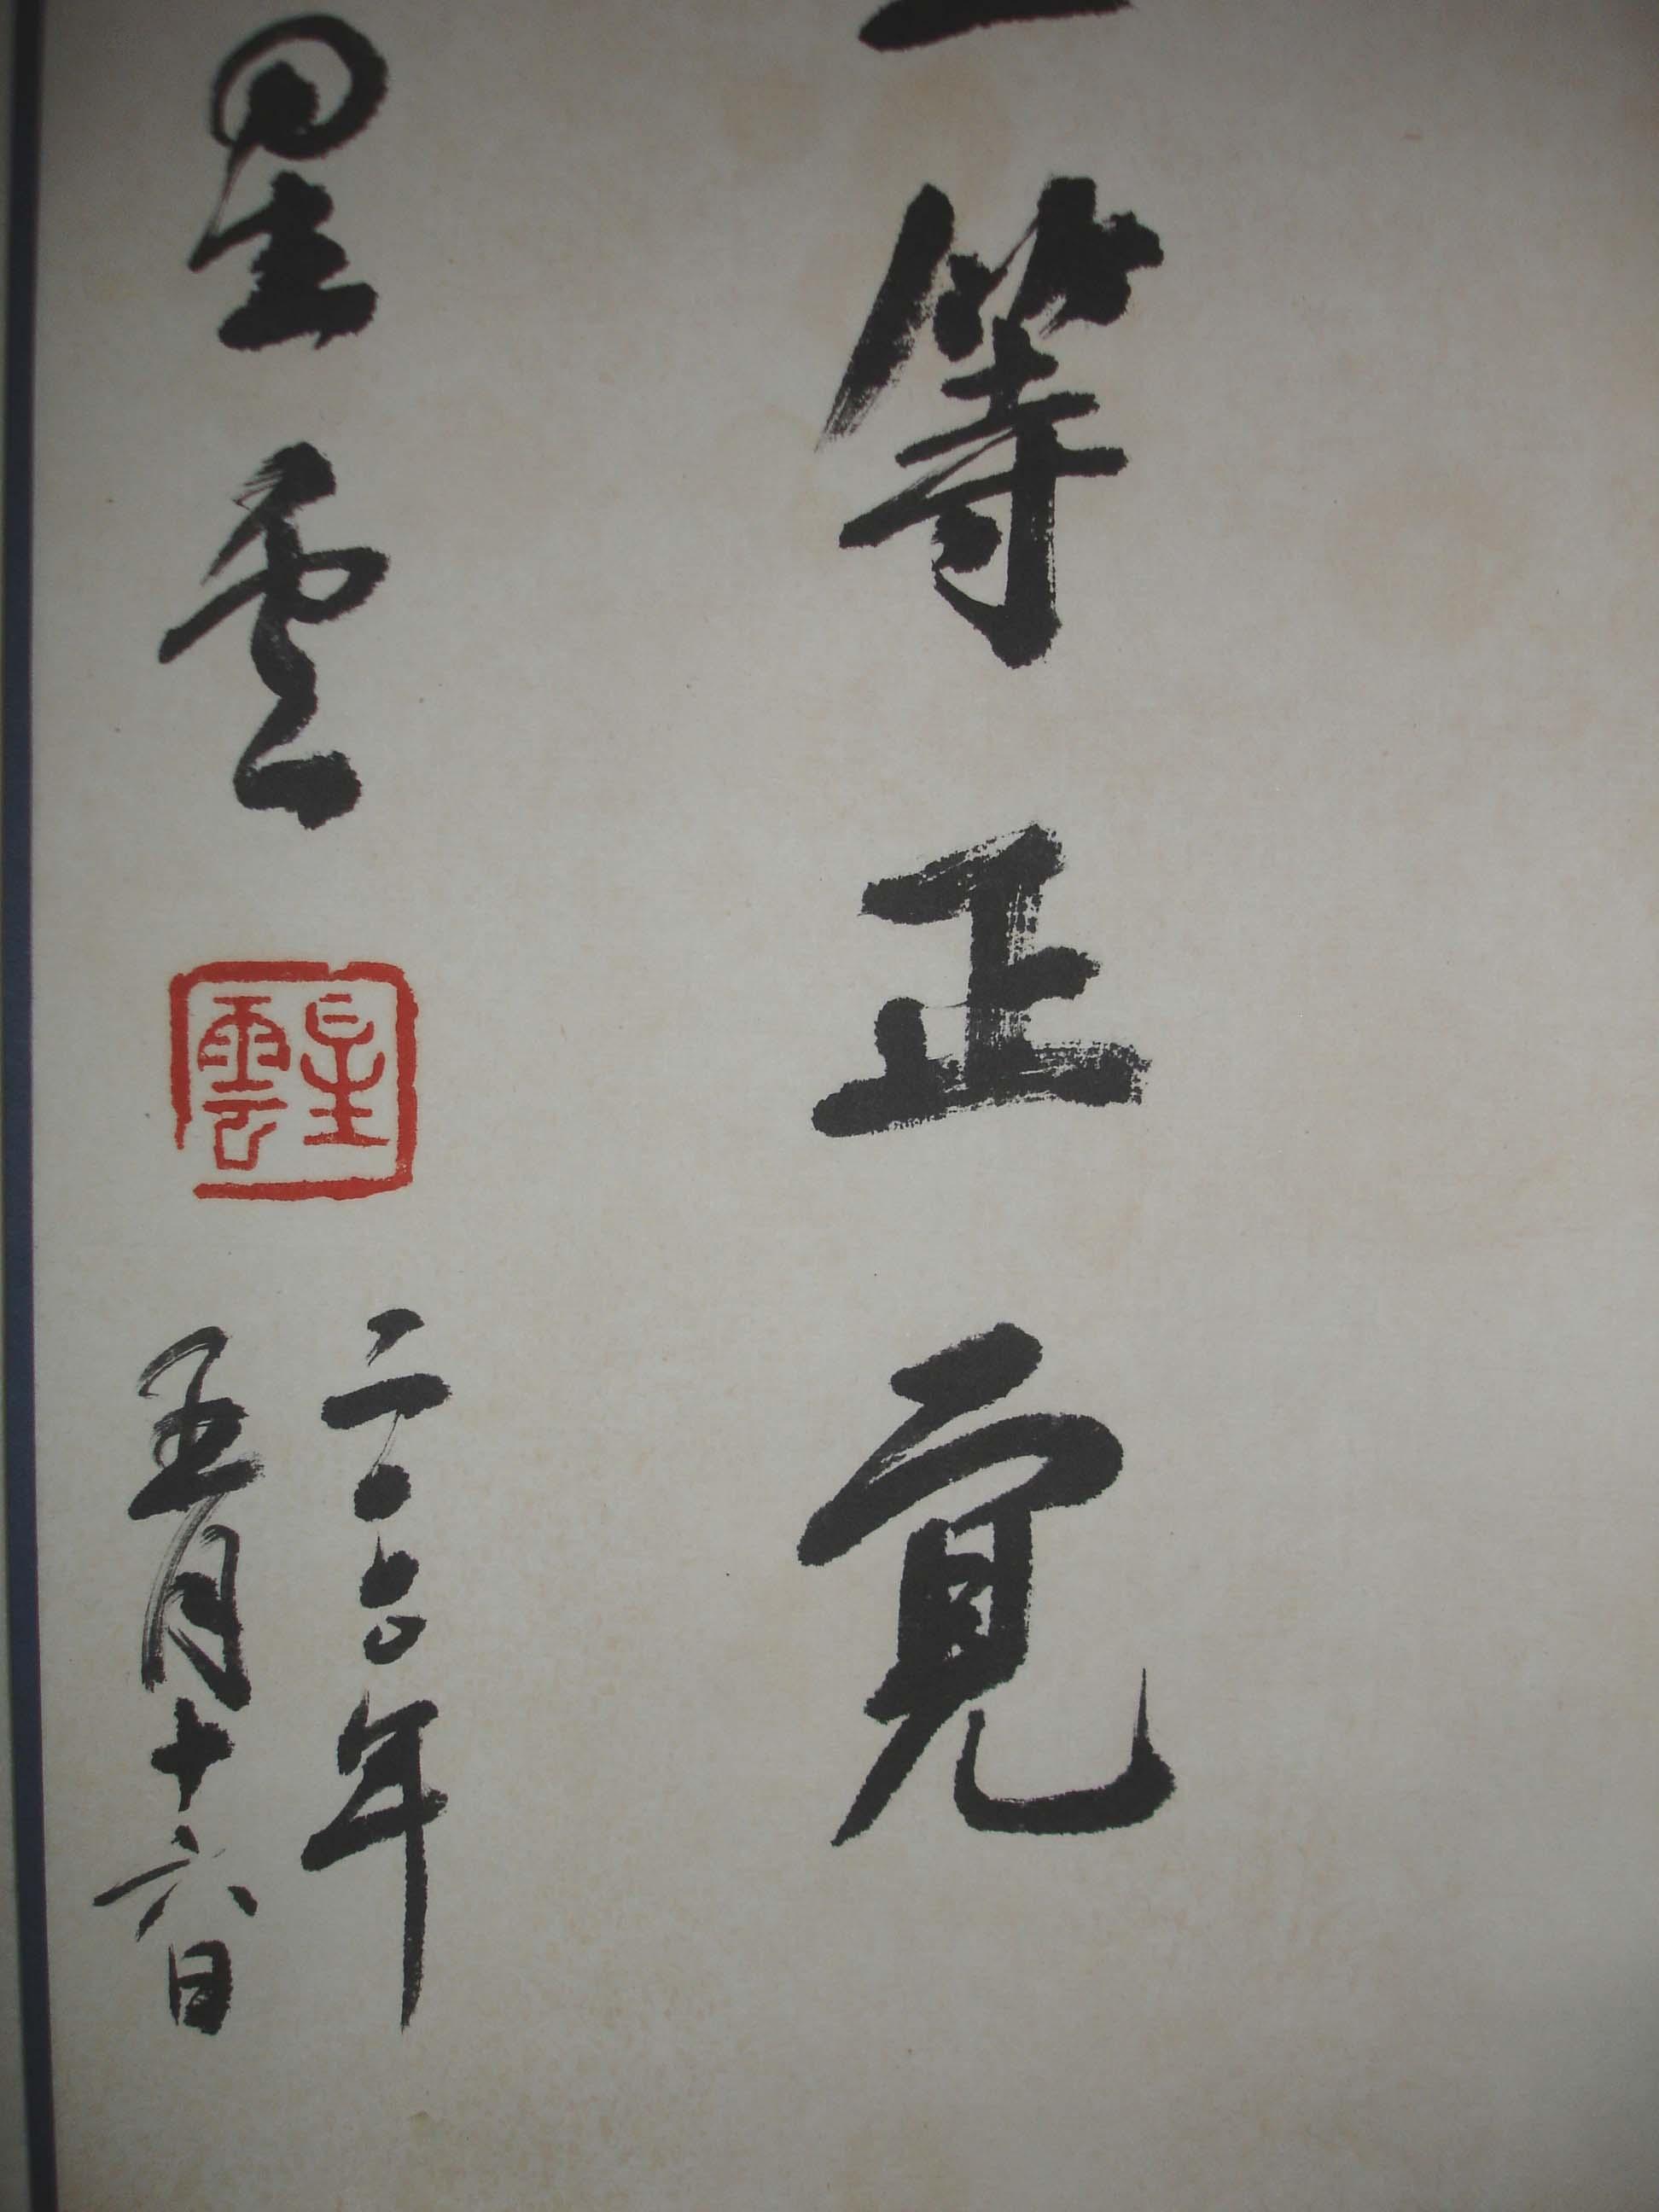 等正覺
星雲
星雲
二〇〇〇年
五月十六日